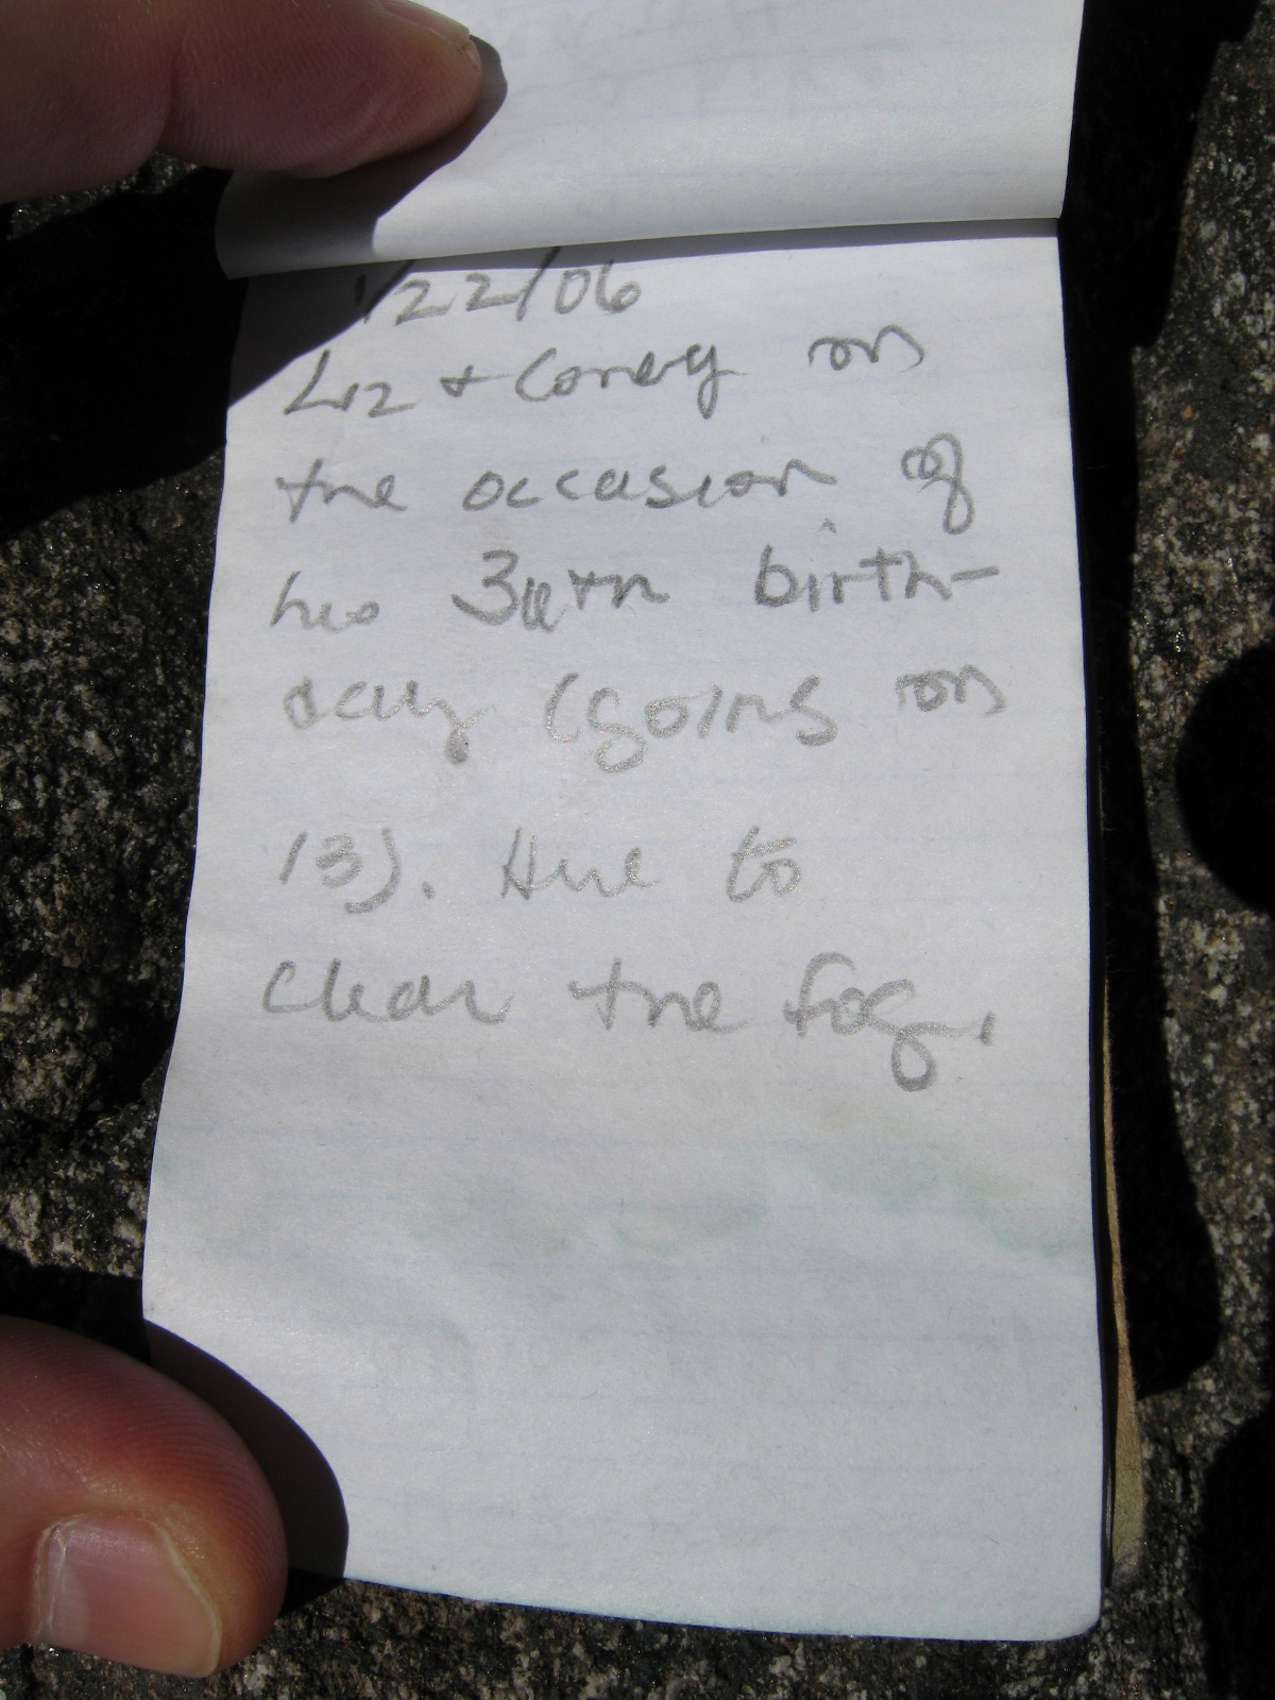 1/22/06
Liz + Corey on
the occasion of
his 34th birth-
day (going on
13). Here to
clear the fog.